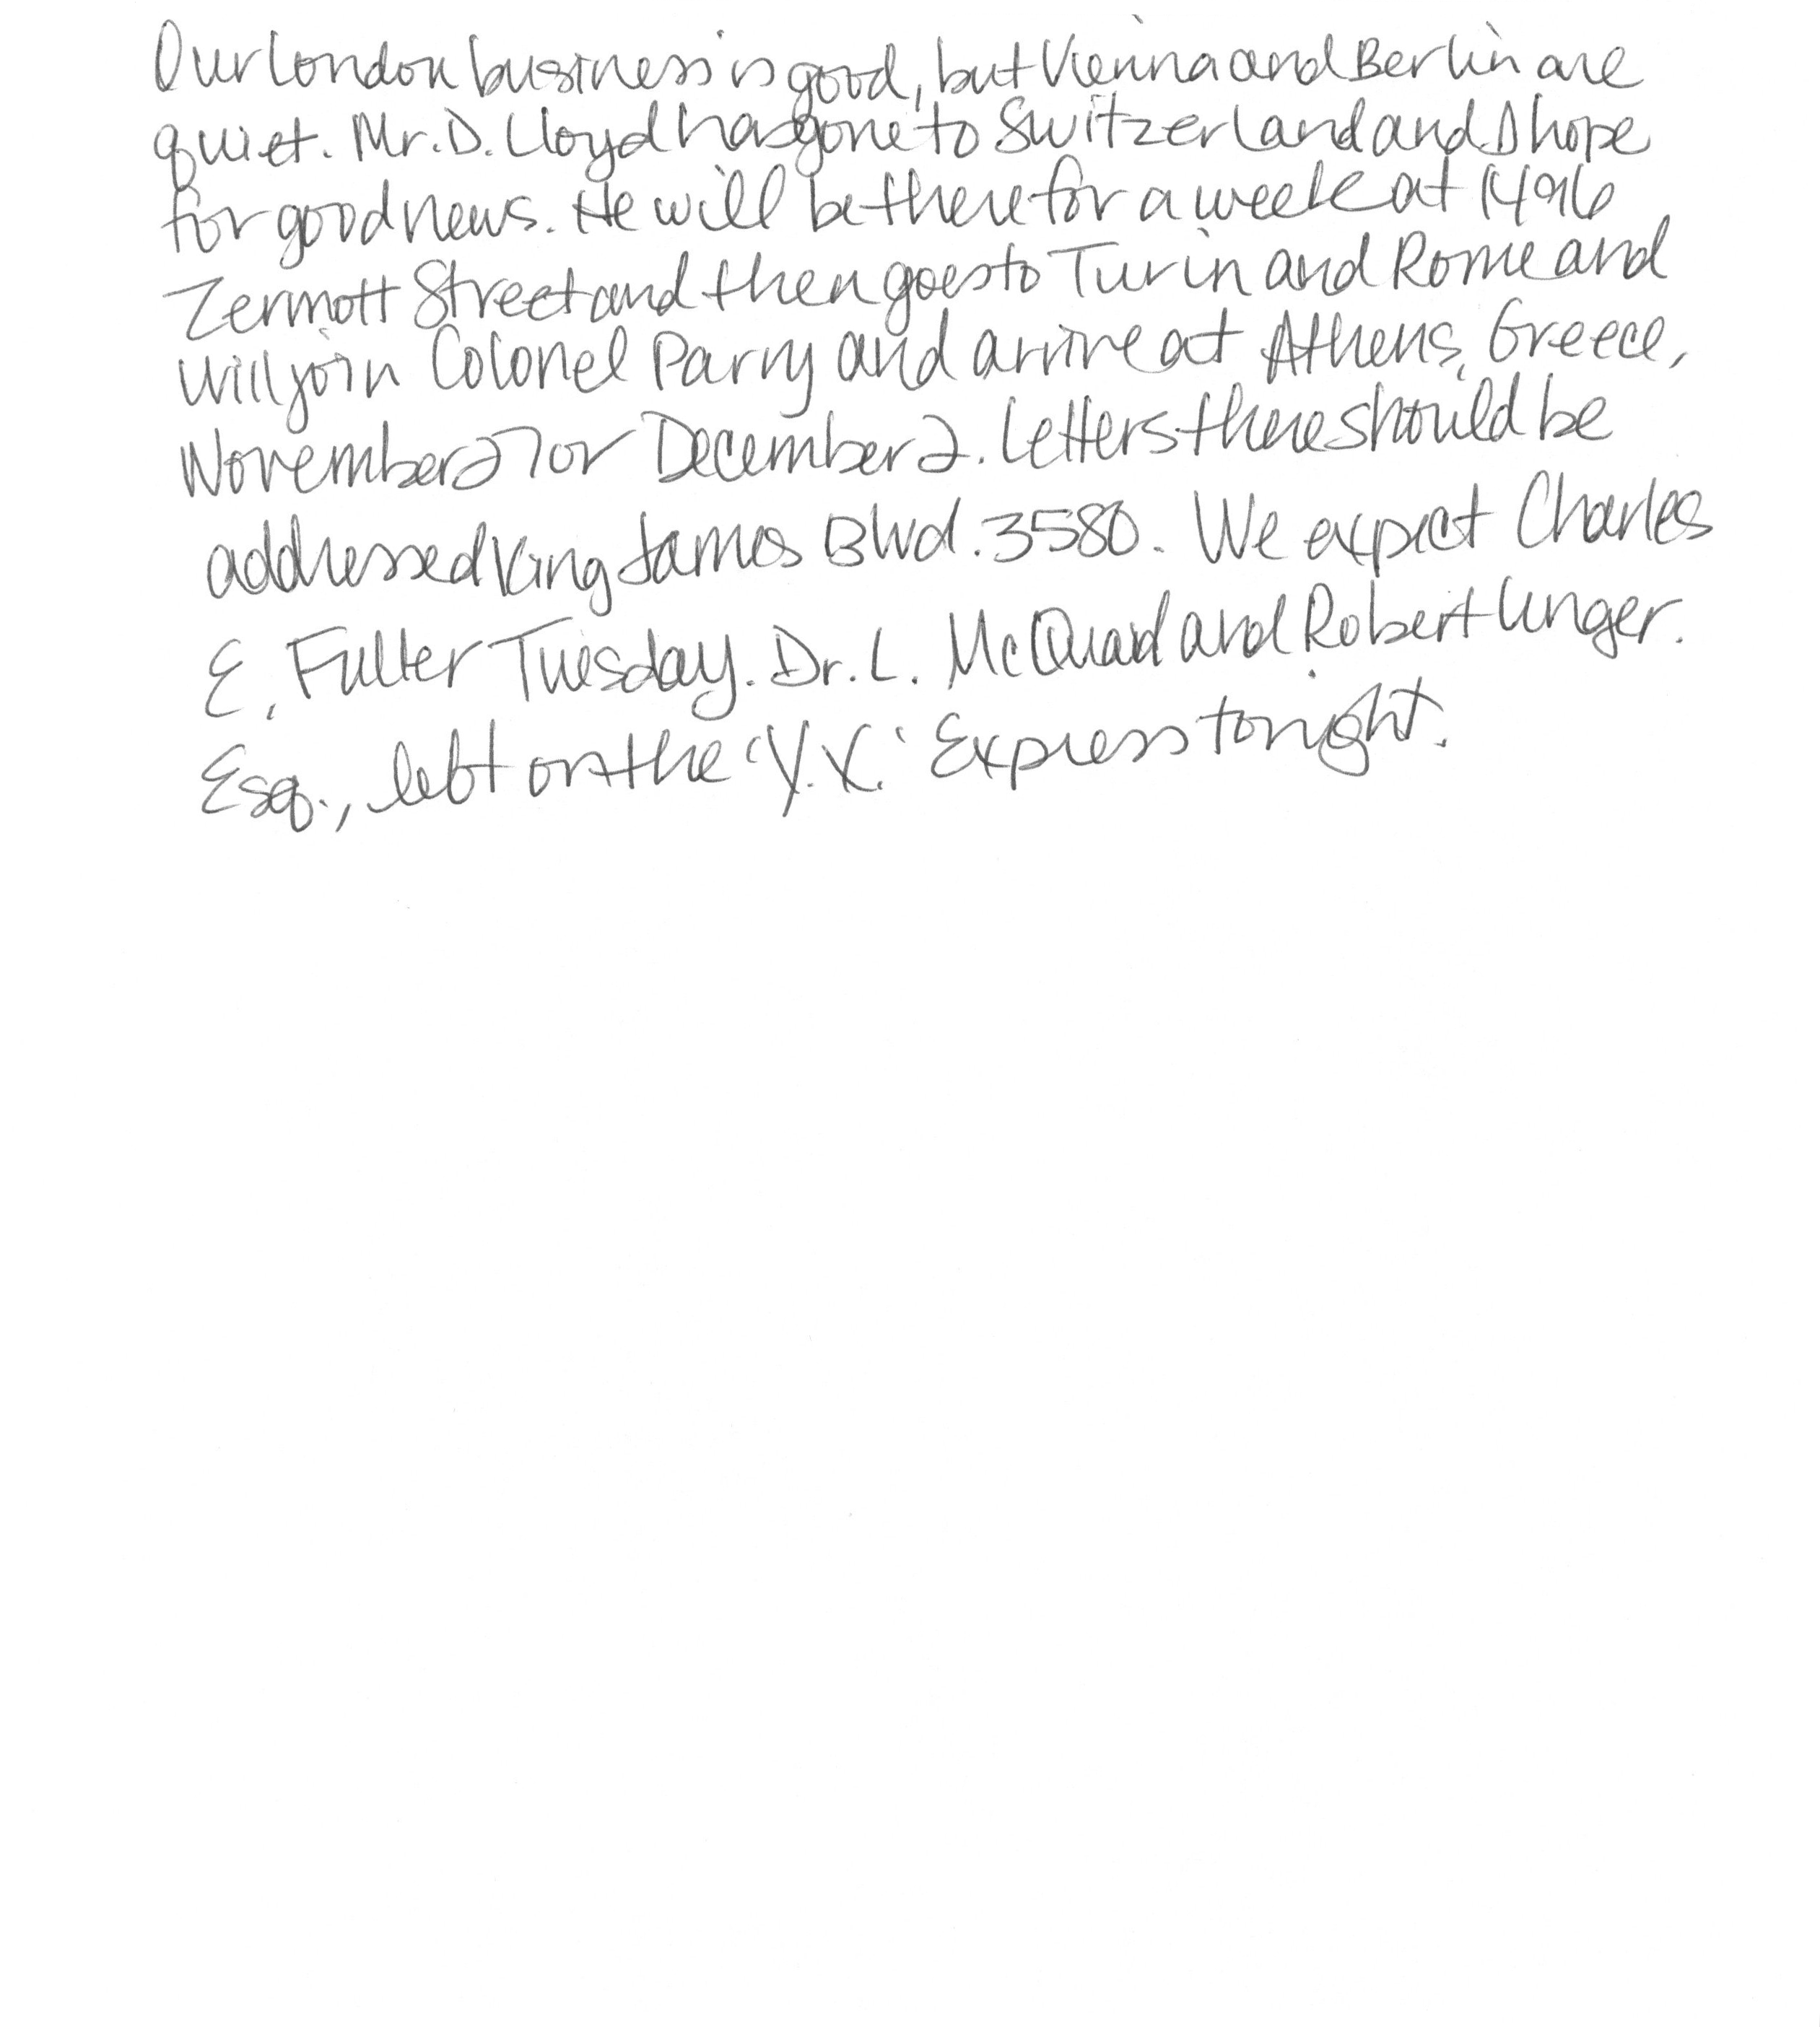 Our London business is good, but Vienna and Berlin are
quiet. Mr. D. Lloyd has gone to Switzerland and I hope
for good news. He will be there for a week at 1496
Zermott Street and then goes to Turin and Rome and
will join Colonel Parry and arrive at Athens, Greece,
November 27 or December 2. Letters there should be
addressed King James Blvd. 3580. We expect Charles
E. Fuller Tuesday. Dr. L. McQuaid and Robert Unger.
Esq., left on the 'Y.X.' Express tonight.